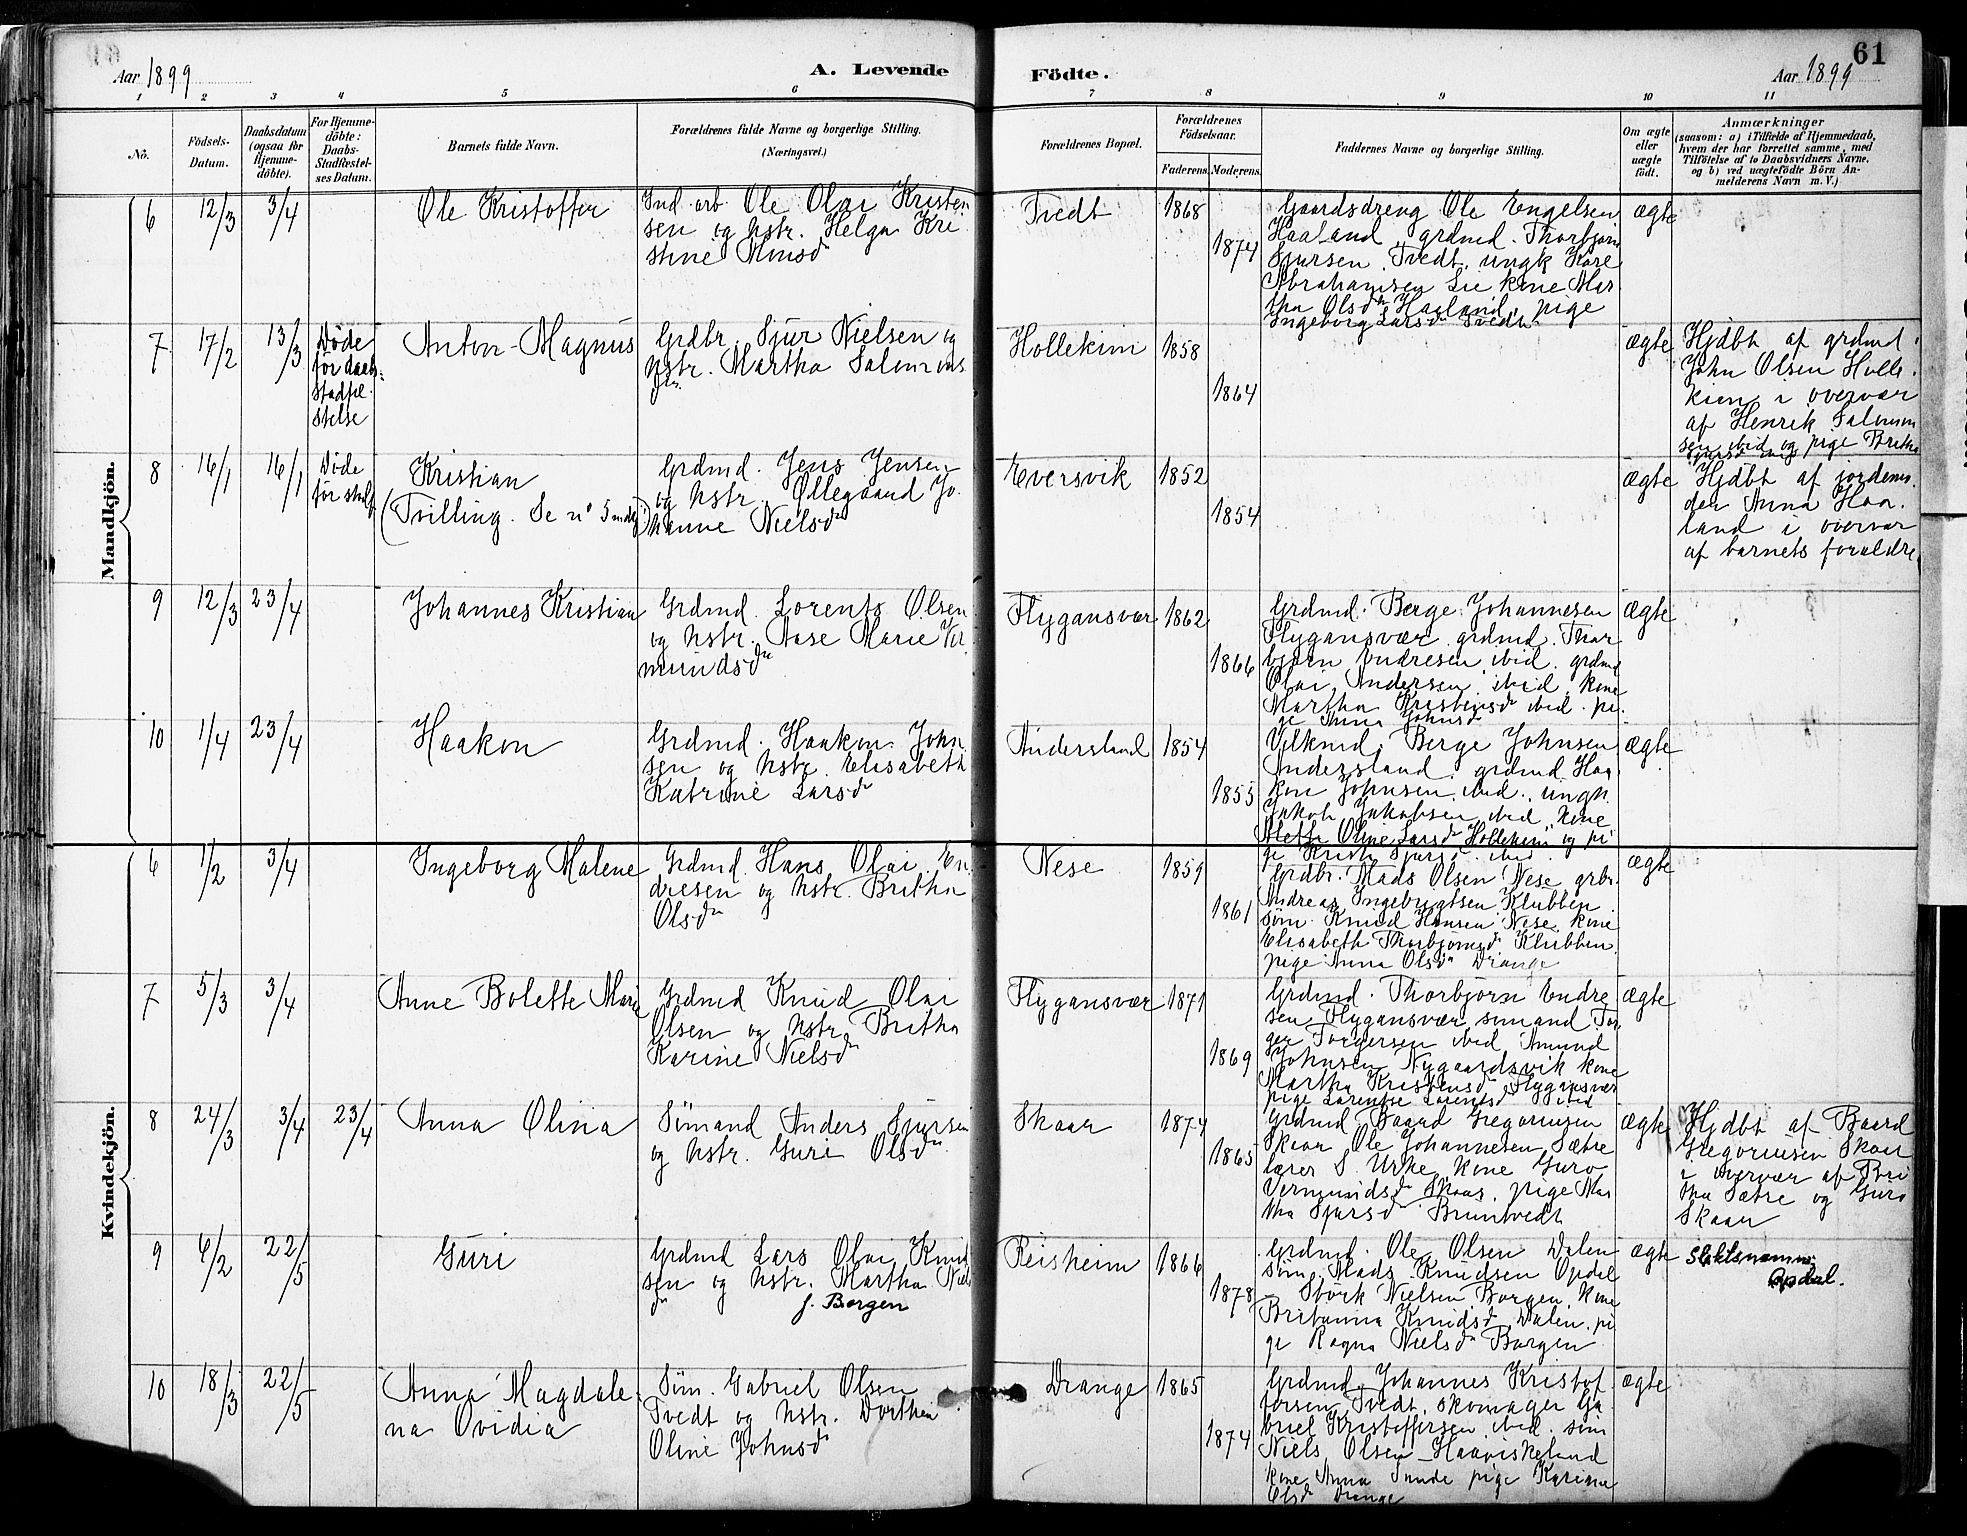 Aar 1899
A. Levende
Födte.
61
Aar 1899
1 2 3 4 5 6 7 8 9 10 11
No.
Födsels-
Datum.
Daabsdatum
(ogsaa for
Hjemme-
döbte).
For Hjemme-
döbte:
Daabs-
Stadfæstel-
ses Datum.
Barnets fulde Navn.
Forældrenes fulde Navne og borgerlige Stilling.
(Næringsvei.)
Forældrenes Bopæl.
Forældrenes
Födselsaar.
Faderens. Moderens.
Faddernes Navne og borgerlige Stilling.
Om ægte
eller
uægte
födt.
Anmærkninger
(saasom: a) i Tilfælde af Hjemmedaab,
hvem der har forrettet samme, med
Tilföielse af to Daabsvidners Navne.
og b) ved uægtefödte Börn An-
melderens Navn m. V.)
Mandkjön.
6
12/3
3/4
Ole Kristoffer
Ind. arb. Ole Olai Kristen
sen og hstr. Helga Kri
stine
Tvedt
1868
1874
Gaardsdreng Ole Engelsen
Haaland, grdmd. Thorbjørn
Sjursen Tvedt, ungk Kore
Abrahamsen Lie kone Mar
tha Olsdr Haaland, pige
Ingeborg Larsdr Tvedt
ægte
7
17/2
13/3
Døde
før daab-
stadfæ-
stelse
Anton Magnus
Grdbr. Sjur Nielsen og
hstr. Martha Salomons
dr
Hollekim
1858
1864
ægte
Hjdbt af grdmd.
John Olsen Holle-
kim i overvær
af Henrik Salomon
sen ibid og pige Britha
8
16/1
16/1
Døde
før stadf
Kristian
(Tvilling. Se no 5 mdkj)
Grdmd. Jens Jensen
og hstr. Øllegaard Jo
hanne Nielsdr
Eversvik
1852
1854
ægte
Hjdbt af jordemo-
der Anna Haa-
land i overvær
af barnets forældre
9
12/3
23/4
Johannes Kristian
Grdmd. Lorents Olsen
og hstr. Aase Marie Ver
mundsdr
Flygansvær
1862
1866
Grdmd. Berge Johannesen
Flygansvær grdmd. Thor
bjørn Endresen ibid. grdmd
Olai Andersen ibid, kone
Martha Kristensdr ibid. pi-
ge Anna Johnsdr
ægte
10
1/4
23/4
Haakon
Grdmd. Haakon John
sen og hstr. Elisabeth
Katrine Larsdr
Andersland
1854
1855
Berge Johnsen
Andersland. grdmd Haa-
kon Johnsen ibid., ungk.
Jakob Jakobsen ibid, kone
Mette Oline Larsdr Hollekim og pi
ge Sjursdr ibid
ægte
Kvindekjön.
6
1/2
3/4
Ingeborg Malene
Grdmd. Hans Olai En
dresen og hstr. Britha
Olsdr
Nese
1859
1861
Grdbr. Mads Olsen Nese grbr.
Andreas Ingebrigtsen Klubben
søm. Knud Hansen Nese, kone
Elisabeth Thorbjørnsdr Klubben,
pige Anna Olsdr Drange
ægte
7
5/3
3/4
Anne Bolette Marie
Grdmd Knud Olai
Olsen og hstr. Britha
Karine Nielsdr
Flygansvær
1871
1869
Grdmd. Thorbjørn Endre
sen Flygansvær, sømand Tor
ger Torgersen ibid Amund
Johnsen Nygaardsvik kone
Martha Kristensdr Flygansvær
pige Larentse Larentsdr ibid
ægte
8
24/3
3/4
23/4
Anna Olina
Sømand Anders Sjursen
og hstr. Guri Olsdr
Skaar
1874
1865
Grdmd Baard Gregoriusen
Skaar Ole Johannesen Sætre
lærer S. Urke, kone Guro
Vermundsdr Skaar, pige Mar
tha Sjursdr Bruntvedt
ægte
Hjdbt af Baard
Gregoriusen Skaar
i overvær af Bri
tha Sætre og Guro
Skaar
9
6/2
22/5
Guri
Grdmd Lars Olai Knud
sen og hstr. Martha Niels
dr f. Borgen
Reisheim
1866
1878
Grdmd. Ole Olsen Dalen
søm. Mads Knudsen Opdal
Størk Nielsen Borgen, kone
Britanna Knudsdr Dalen. pi
ge Ragna Nielsdr Borgen
ægte
Slektsnamn:
Opdal.
10
18/3
22/5
Anna Magdale-
na Ovidia
Søm. Gabriel Olsen
Tvedt og hstr. Dorthea
Oline Johnsdr
Drange
1865
1874
Grdmd. Johannes Kristof-
fersen Tvedt, skomager Ga
briel Kristoffersen ibid. søm
Niels Olsen Haaviskeland
kone Anna Tunde pige Karina
Olsdr Drange
ægte